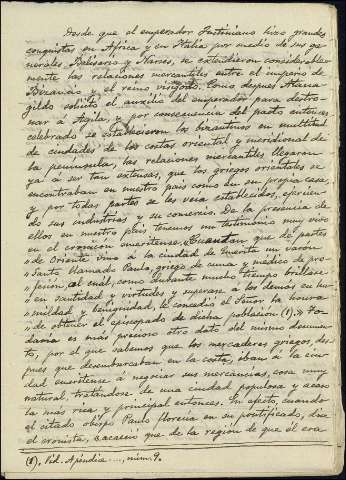 Desde que el emperador Justiniano hizo grandes
conquistas en África y en Italia por medio de sus ge-
nerales Belisario y Narsés, se extendieron considerable-
mente las relaciones mercantiles entre el imperio de
Bizancio y el reino visigodo. Como después Atana-
gildo solicitó el auxilio del emperador para destro-
nar á Agila, y por consecuencia del pacto entonces
celebrado se establecieron los bizantinos en multitud
de ciudades de las costas oriental y meridional de
la península, las relaciones mercantiles llegaron
ya á ser tan extensas, que los griegos orientales se
encontraban en nuestro país como en su propia casa,
y por todas partes se les veía establecidos, ejercien-
do sus industrias y su comercio. De la presencia de
ellos en nuestro país tenemos un testimonio muy vivo
en el cronicón emeritense. Cuentan que de partes
"de Oriente vino á la ciudad de Emerita un varón
"Santo llamado Paulo, griego de cuna y médico de pro-
"fesión, al cual, como durante mucho tiempo brillase
"en santidad y virtudes y superase á los demás en hu-
"mildad y benignidad, le concedió el Señor la honra
"de obtener el episcopado de dicha población (1)." To-
davía es más precioso otro dato del mismo documen-
to, por el que sabemos que los mercaderes griegos, des-
pués que desembarcaban en la costa, iban á la ciu-
dad emeritense á negociar sus mercancías, cosa muy
natural, tratándose de una ciudad populosa y acaso
la más rica y principal entonces. En efecto, cuando
el citado obispo Paulo florecía en su pontificado, dice
el cronista, acaeció que de la región de que él era
(1). Vid. Apéndice ...., núm. 9.